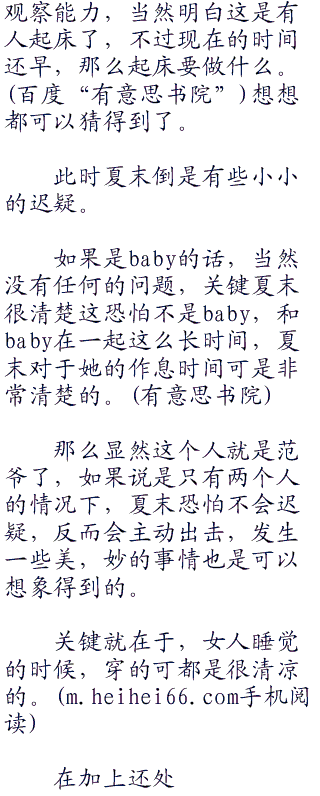 观察能力，当然明白这是有
人起床了，不过现在的时间
还早，那么起床要做什么。
(百度“有意思书院”)想想
都可以猜得到了。
此时夏末倒是有些小小
的迟疑。
如果是baby的话，当然
没有任何的问题，关键夏末
很清楚这恐怕不是baby，和
baby在一起这么长时间，夏
末对于她的作息时间可是非
常清楚的。(有意思书院)
那么显然这个人就是范
爷了，如果说是只有两个人
的情况下，夏末恐怕不会迟
疑，反而会主动出击，发生
一些美，妙的事情也是可以
想象得到的。
关键就在于，女人睡觉
的时候，穿的可都是很清凉
的。(m.heihei66.com手机阅
读)
在加上还处